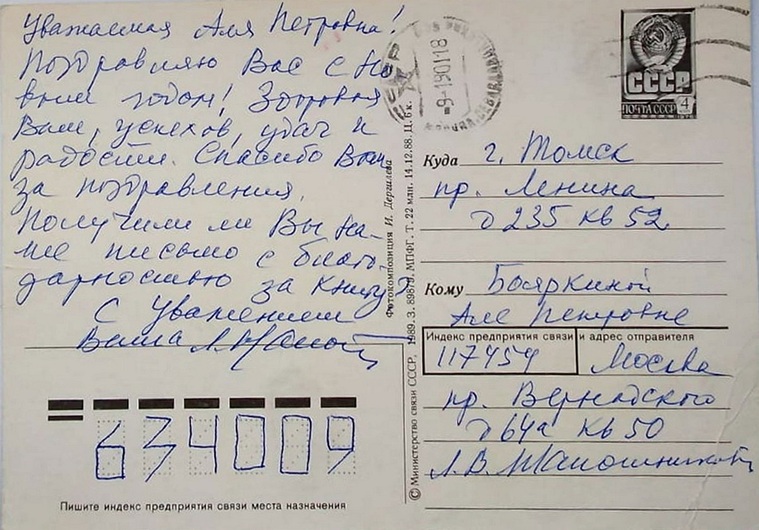 Уважаемая Аля Петровна!
Поздравляю Вас с Но
вым годом! Здоровья
Вам, успехов, удач и
радости. Спасибо Вам
за поздравления.
Получили ли Вы на-
ше письмо с благо
дарностью за книгу?
С уважением
Ваша
634009
Пишите индекс предприятия связи места назначения
Фотокомпозиция И. Дергилева
© Министерство связи СССР, 1989. З. 89879. МПФГ. Т. 22 млн. 14.12.88. Ц. 6 к.
СССР
-9-1901 18
СССР
ПОЧТА СССР 4
Куда г. Томск
пр. Ленина
д 235 кв 52
Кому Бояркиной
Але Петровне
Индекс предприятия связи и адрес отправителя
117454 Москва
пр. Вернадского
д 64а кв 50
Л.В.